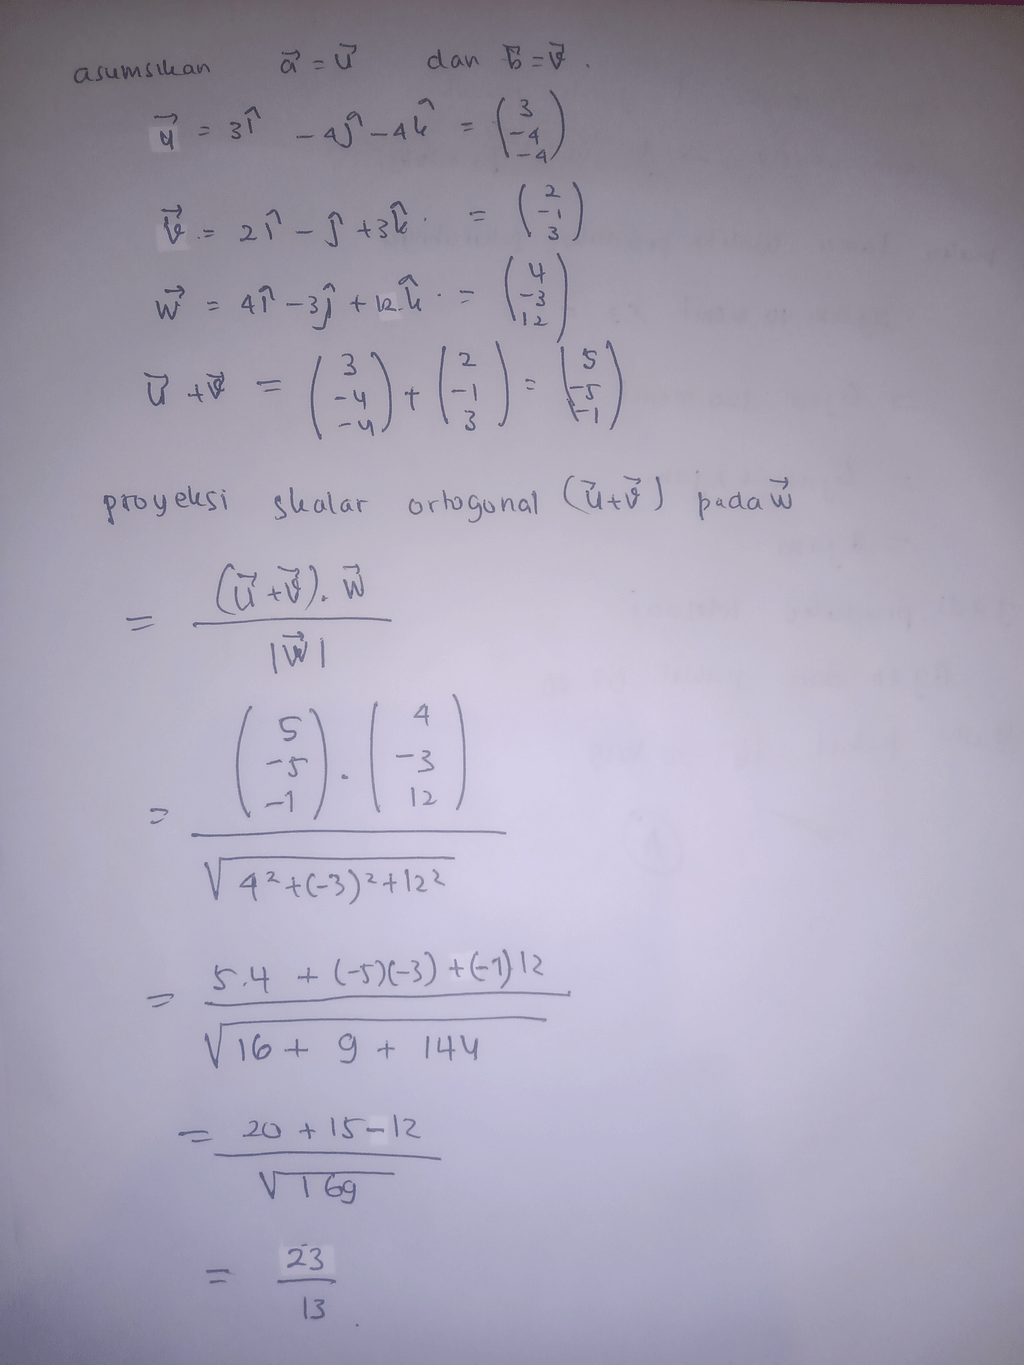 asumsikan a⃗ = u⃗ dan b⃗ = v⃗.
u⃗ = 3î − 4ĵ − 4k̂ = (3 −4 −4)
v⃗ = 2î − ĵ + 3k̂. = (2 −1 3)
w⃗ = 4î − 3ĵ + 12k̂. = (4 −3 12)
u⃗ + v⃗ = (3 −4 −4) + (2 −1 3) = (5 −5 −1)
proyeksi skalar ortogonal (u⃗+v⃗) pada w⃗
= (u⃗+v⃗). w⃗
|w⃗|
= (5 −5 −1) . (4 −3 12)
√4²+(-3)²+12²
= 5.4 + (-5)(-3) + (-1) 12
√16 + 9 + 144
= 20 + 15 − 12
√169
= 23
13.